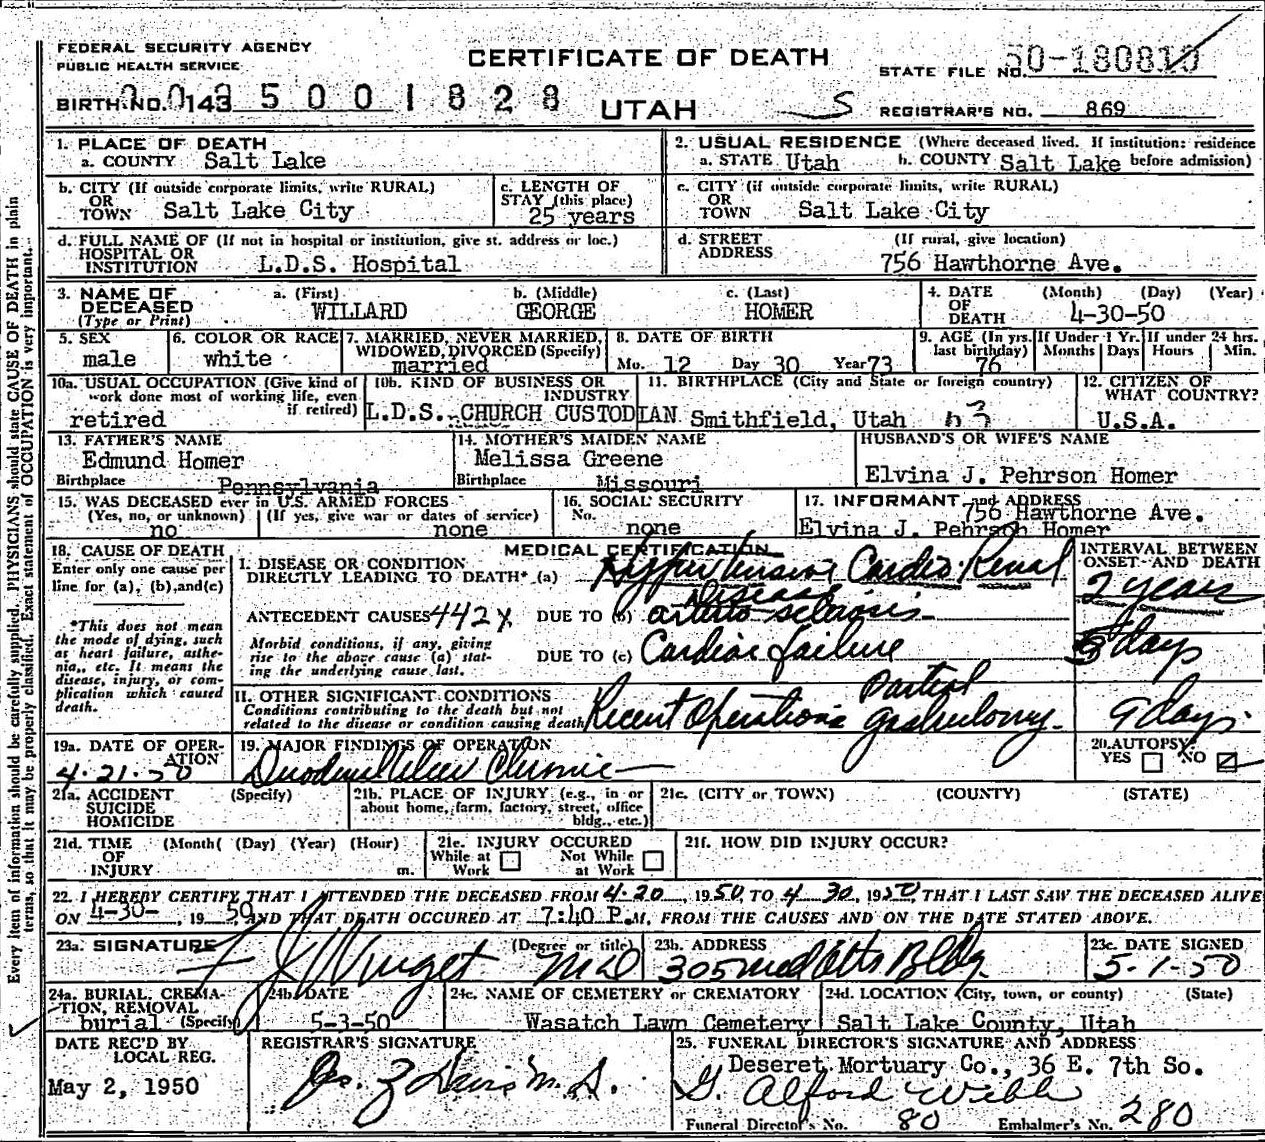 FEDERAL SECURITY AGENCY
PUBLIC HEALTH SERVICE
CERTIFICATE OF DEATH
STATE FILE NO. 50-180810
BIRTH NO. 143 5 0 0 1 8 2 8
UTAH
S
REGISTRAR'S NO. 869
Every item of information should be carefully supplied. PHYSICIANS should state CAUSE OF DEATH in plain
terms, so that it may be properly classified. Exact statement of OCCUPATION is very important.
1. PLACE OF DEATH
a. COUNTY Salt Lake
2. USUAL RESIDENCE (Where deceased lived. If institution: residence
a. STATE Utah b. COUNTY Salt Lake before admission)
b. CITY (If outside corporate limits, write RURAL)
OR
TOWN Salt Lake City
c. LENGTH OF
STAY (this place)
25 years
c. CITY (if outside corporate limits, write RURAL)
OR
TOWN Salt Lake City
d. FULL NAME OF (If not in hospital or institution, give st. address or loc.)
HOSPITAL OR
INSTITUTION L.D.S. Hospital
d. STREET (If rural, give location)
ADDRESS 756 Hawthorne Ave.
3. NAME OF
DECEASED
(Type or Print)
a. (First) b. (Middle) c. (Last)
WILLARD GEORGE HOMER
4. DATE (Month) (Day) (Year)
OF
DEATH 4-30-50
5. SEX
male
6. COLOR OR RACE
white
7. MARRIED, NEVER MARRIED,
WIDOWED, DIVORCED (Specify)
married
8. DATE OF BIRTH
Mo. 12 Day 30 Year 73
9. AGE (In yrs. last birthday)
76
If Under 1 Yr.
Months Days
If under 24 hrs.
Hours Min.
10a. USUAL OCCUPATION (Give kind of
work done most of working life, even
if retired)
retired
10b. KIND OF BUSINESS OR
INDUSTRY
L.D.S. CHURCH CUSTODIAN
11. BIRTHPLACE (City and State or foreign country)
Smithfield, Utah
12. CITIZEN OF
WHAT COUNTRY?
U.S.A.
13. FATHER'S NAME
Edmund Homer
Birthplace Pennsylvania
14. MOTHER'S MAIDEN NAME
Melissa Greene
Birthplace Missouri
HUSBAND'S OR WIFE'S NAME
Elvina J. Pehrson Homer
15. WAS DECEASED ever in U.S. ARMED FORCES
(Yes, no, or unknown) (If yes, give war or dates of service)
no none
16. SOCIAL SECURITY
No. none
17. INFORMANT and ADDRESS
756 Hawthorne Ave.
Elvina J. Pehrson Homer
18. CAUSE OF DEATH
Enter only one cause per
line for (a), (b), and (c)
*This does not mean
the mode of dying, such
as heart failure, asthe-
nia, etc. It means the
disease, injury, or com-
plication which caused
death.
MEDICAL CERTIFICATION
I. DISEASE OR CONDITION
DIRECTLY LEADING TO DEATH* (a) Hypertensive Cardio-Renal
Disease
INTERVAL BETWEEN
ONSET AND DEATH
2 years
ANTECEDENT CAUSES 442X DUE TO (b) arterio-sclerosis
Morbid conditions, if any, giving
rise to the above cause (a) stat-
ing the underlying cause last.
DUE TO (c) Cardiac failure
3 days
II. OTHER SIGNIFICANT CONDITIONS
Conditions contributing to the death but not
related to the disease or condition causing death
Recent Operation Partial
9 days
19a. DATE OF OPER-
ATION
4-21-50
19. MAJOR FINDINGS OF OPERATION
Duodenal Ulcer Chronic
20. AUTOPSY
YES NO
21a. ACCIDENT (Specify)
SUICIDE
HOMICIDE
21b. PLACE OF INJURY (e.g., in or
about home, farm, factory, street, office
bldg., etc.)
21c. (CITY or TOWN) (COUNTY) (STATE)
21d. TIME (Month( (Day) (Year) (Hour)
OF
INJURY m.
21e. INJURY OCCURED
While at Work Not While at Work
21f. HOW DID INJURY OCCUR?
22. I HEREBY CERTIFY THAT I ATTENDED THE DECEASED FROM 4-20, 1950 TO 4-30, 1950, THAT I LAST SAW THE DECEASED ALIVE
ON 4-30-, 1950, AND THAT DEATH OCCURED AT 7:40 P.M. FROM THE CAUSES AND ON THE DATE STATED ABOVE.
23a. SIGNATURE (Degree or title)
MD
23b. ADDRESS
305 Med Arts Bldg.
23c. DATE SIGNED
5-1-50
24a. BURIAL, CREMA-
TION, REMOVAL
burial (Specify)
24b. DATE
5-3-50
24c. NAME OF CEMETERY or CREMATORY
Wasatch Lawn Cemetery
24d. LOCATION (City, town, or county) (State)
Salt Lake County, Utah
DATE REC'D BY
LOCAL REG.
May 2, 1950
REGISTRAR'S SIGNATURE
25. FUNERAL DIRECTOR'S SIGNATURE AND ADDRESS
Deseret Mortuary Co., 36 E. 7th So.
G. Alford Webb
Funeral Director's No. 80 Embalmer's No. 280